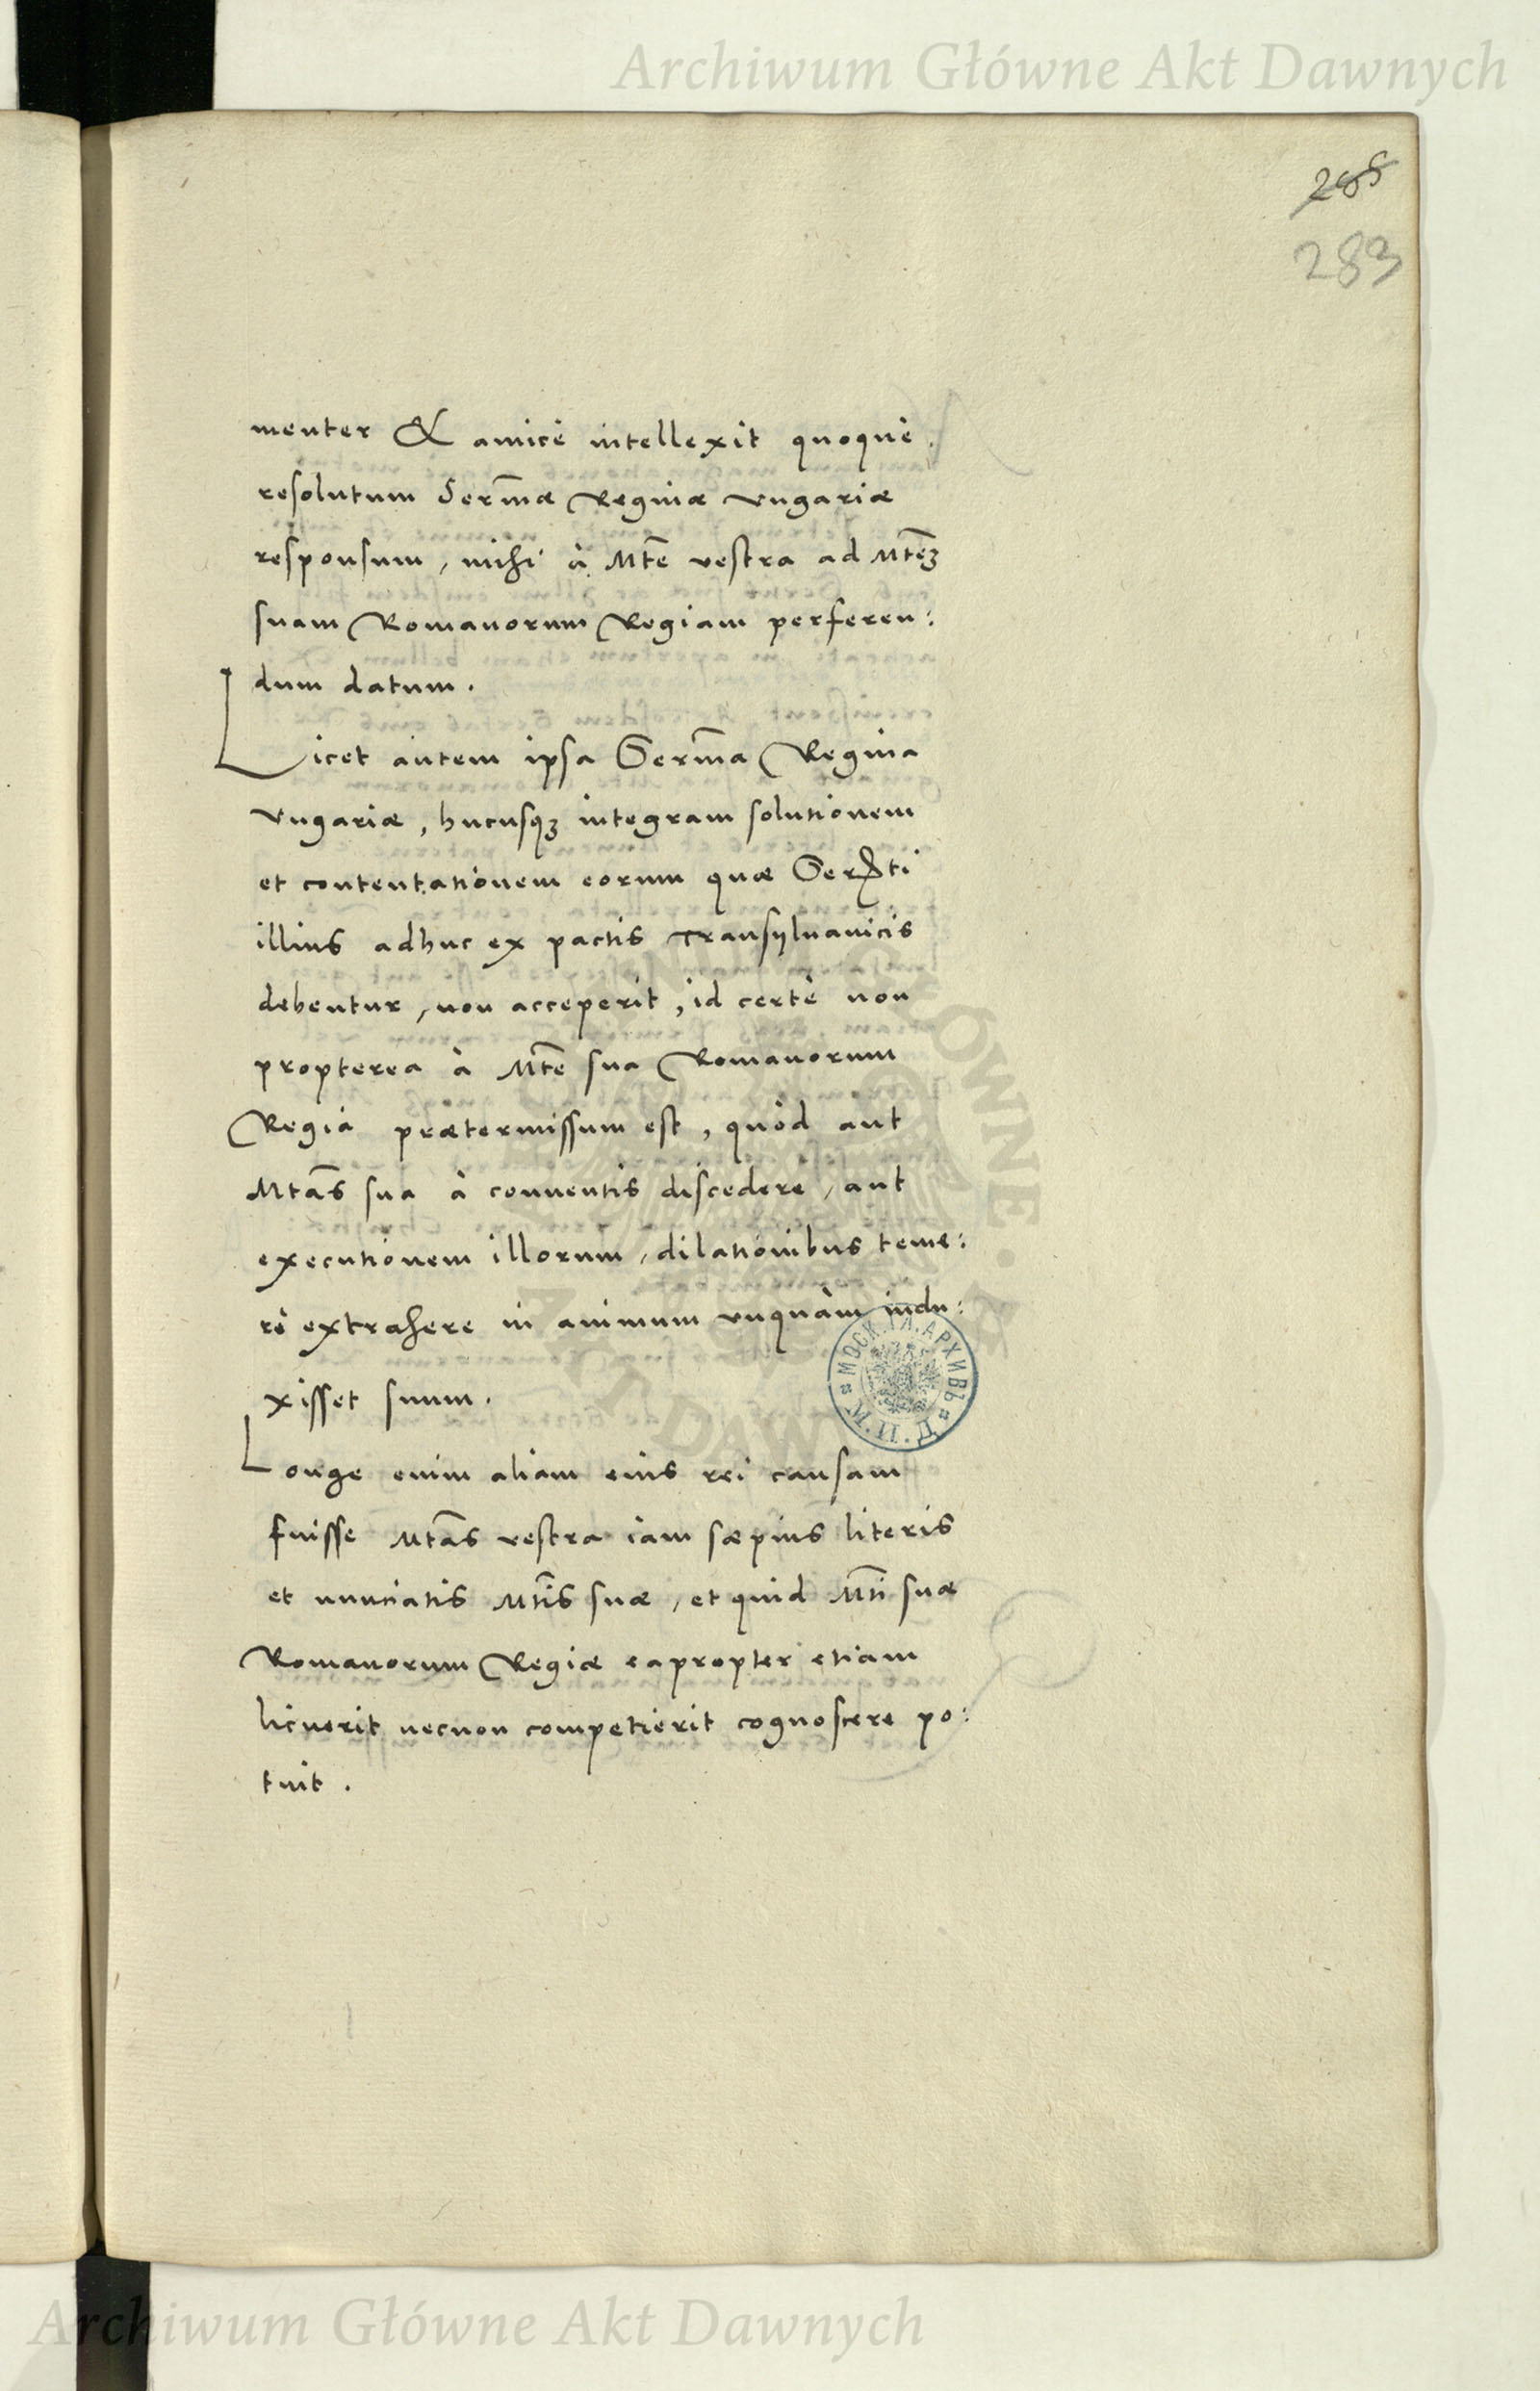 Archiwum Główne Akt Dawnych
288
283
menter & amicè intellexit quoque
resolutum Sermae Reginae Vngariae
responsum, mihi à Mte vestra ad Mtēꝫ
suam Romanorum Regiam perferen:
dum datum.
Licet autem ipsa Serma Regina
Vngariae, hucusqꝫ integram solutionem
et contentationem eorum quae Serti
illius adhuc ex pactis Transylvanicis
debentur, non acceperit, id certè non
propterea à Mte sua Romanorum
Regia praetermissum est, quòd aut
Mtas sua à conventis discedere, aut
executionem illorum, dilationibus teme:
rè extrahere in animum vnquàm indu:
xisset suum.
Longe enim aliam eius rei causam
fuisse Mtas vestra iam saepius literis
et nunciatis Mtis suae, et quid Mti suae
Romanorum Regiae eapropter etiam
licuerit necnon competierit cognoscere po:
tuit.
МОСК. ГЛ. АРХИВЪ
М. И. Д.
Archiwum Główne Akt Dawnych